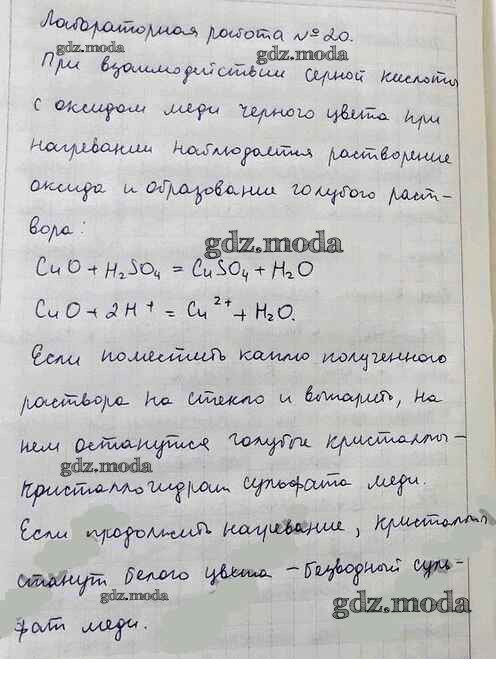 Лабораторная работа №20.
gdz.moda gdz.moda
При взаимодействии серной кислоты
с оксидом меди черного цвета при
gdz.moda gdz.moda
нагревании наблюдается растворение
оксида и образование голубого раст-
вора:
gdz.moda
CuO + H2SO4 = CuSO4 + H2O
CuO + 2H⁺ = Cu²⁺ + H2O.
Если поместить каплю полученного
раствора на стекло и выпарить, на
нем останутся голубые кристаллы-
gdz.moda
кристаллогидрат сульфата меди.
Если продолжить нагревание, кристаллы
станут белого цвета - безводный суль-
gdz.moda gdz.moda
фат меди.